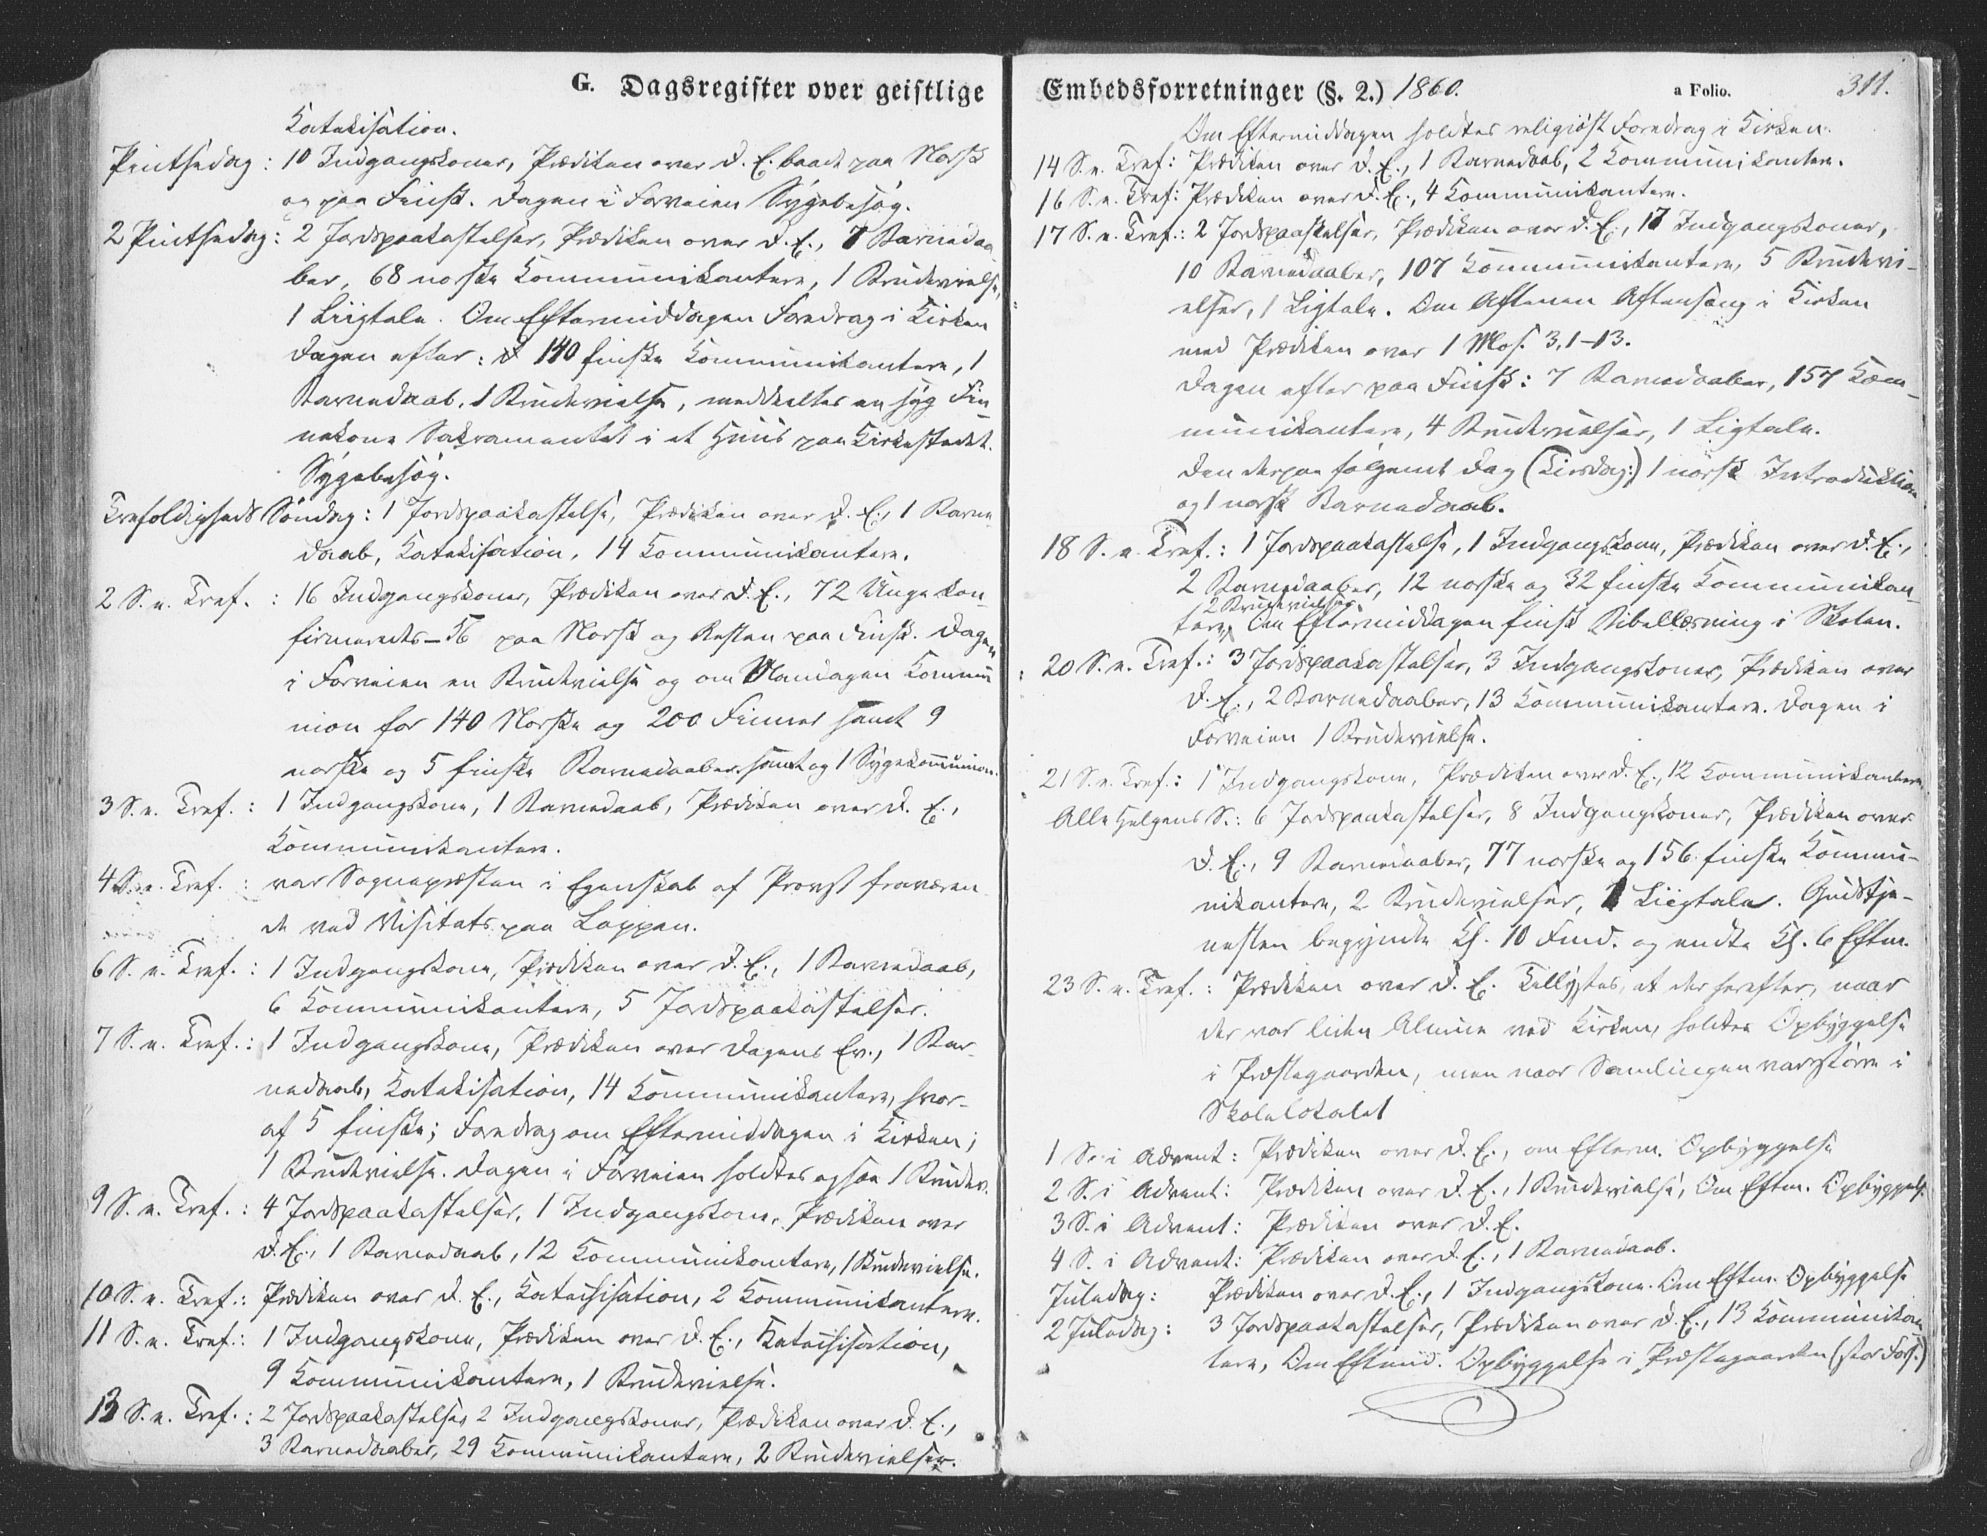 G. Dagsregister over geistlige
Katekisation.
Pintsedag: 10 Indgangskoner, Prædiken over D. E. baade paa Norsk
og paa Finsk. Dagen i Forveien Sygebesøg.
2 Pintsedag: 2 Jordspaakastelser, Prædiken over D. E., 7 Barnedaa
ber, 68 norske Kommunikantere, 1 Brudevielse,
1 Liigtale. Om Eftermiddagen Foredrag i Kirken
Dagen efter: 140 finske Kommunikantere, 1
Barnedaab, 1 Brudevielse, meddeeltes en syg Fin
nekone Sakramentet i et Huus paa Kirkestedet.
Sygebesøg.
Trefoldigheds Søndag: 1 Jordspaakastelse, Prædiken over D. E., 1 Barne
daab, Katekisation, 14 Kommunikantere.
2 S. e. Tref. : 16 Indgangskoner, Prædiken over D. E., 72 Unge kon
firmeredes – 56 paa Norsk og Resten paa Finsk. Dagen
i Forveien en Brudevielse og om Mandagen Kommu
nion for 140 Norske og 200 Finner samt 9
norske og 5 finske Barnedaaber samt og 1 Sygekommunion.
3 S. e. Tref. : 1 Indgangskone, 1 Barnedaab, Prædiken over D. E.,
Kommunikantere.
4 S. e. Tref. : var Sognepræsten i Egenskab af Provst fraværen
de ved Visitats paa Loppen.
6 S. e. Tref. : 1 Indgangskone, Prædiken over D. E., 1 Barnedaab,
6 Kommunikantere, 5 Jordspaakastelser.
7 S. e. Tref. : 1 Indgangskone, Prædiken over Dagens Ev., 1 Bar-
nedaab, Katekisation, 14 Kommunikantere, hvor-
af 5 finske; Foredrag om Eftermiddagen i Kirken;
1 Brudevielse. Dagen i Forveien holdtes ogsaa 1 Brudev.
9 S. e. Tref. : 4 Jordspaakastelser, 1 Indgangskone, Prædiken over
D. E., 1 Barnedaab, 12 Kommunikantere, 1 Brudevielse.
10 S. e. Tref.: Prædiken over D. E., Katechisation, 2 Kommunikantere.
11 S. e. Tref.: 1 Indgangskone, Prædiken over D. E., Katechisation,
9 Kommunikantere, 1 Brudevielse.
13 S. e. Tref. : 2 Jordspaakastelser, 2 Indgangskoner, Prædiken over D. E.,
3 Barnedaaber, 29 Kommunikantere, 2 Brudevielser.
Embedsforretninger (§. 2.) 1860. a Folio. 311.
Om Eftermiddagen holdtes religiøst Foredrag i Kirken.
14 S. e. Tref: Prædiken over D. E., 1 Barnedaab, 2 Kommunikantere.
16 S. e. Tref: Prædiken over D. E., 4 Kommunikantere.
17 S. e. Tref.: 2 Jordspaakastelser, Prædiken over D. E., 17 Indgangskoner,
10 Barnedaaber, 107 Kommunikantere, 5 Brudevi-
elser, 1 Ligtale. Om Aftenen Aftensang i Kirken
med Prædiken over 1 Mos. 3, 1–13.
Dagen efter paa Finsk: 7 Barnedaaber, 157 Kom-
munikantere, 4 Brudevielser, 1 Ligtale.
Den derpaa følgende Dag (Tirsdag:) 1 norsk Introduktion
og 1 norsk Barnedaab.
18 S. e. Tref. : 1 Jordspaakastelse, 1 Indgangskone, Prædiken over D. E.,
2 Barnedaaber, 12 norske og 32 finske Kommunikan-
2 Brudevielser.
tere, Om Eftermiddagen finsk Bibellæsning i Skolen.
20 S. e. Tref. : 3 Jordspaakastelser, 3 Indgangskoner, Prædiken over
D. E., 2 Barnedaaber, 13 Kommunikantere. Dagen i
Forveien 1 Brudevielse.
21 S. e. Tref. : 1 Indgangskone, Prædiken over D. E., 12 Kommunikantere
Alle Helgens S.: 6 Jordspaakastelser, 8 Indgangskoner, Prædiken over
D. E., 9 Barnedaaber, 77 norske og 156 finske Kommu-
nikantere, 2 Brudevielser, 1 Liigtale. Gudstje-
nesten begyndte Kl. 10 Fmd. og endte Kl. 6 Eftm.
23 S. e. Tref. : Prædiken over D. E. Tillystes, at der herefter, naar
der var liden Almue ved Kirken, holdtes Opbyggelse
i Præstegaarden, men naar Samlingen var større i
Skolelokalet
1 S. i Advent: Prædiken over D. E., om Efterm. Opbyggelse
2 S. i Advent: Prædiken over D. E., 1 Brudevielse, Om Eftm. Opbyggelse.
3 S. i Advent: Prædiken over D. E.
4 S. i Advent: Prædiken over D. E., 1 Barnedaab.
Juledag: Prædiken over D. E., 1 Indgangskone. Om Eftm. Opbyggelse
2 Juledag: 3 Jordspaakastelser, Prædiken over D. E., 13 Kommunikan
tere, Om Eftmd. Opbyggelse i Præstegaarden (stor Fors.)